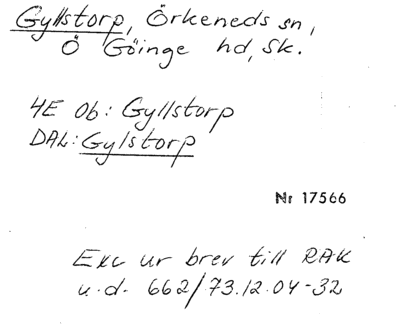 Gyllstorp, Örkeneds sn,
Ö Göinge hd, Sk.
4E 0b: Gyllstorp
DAL: Gylstorp
Nr 17566
Exc ur brev till RAK
u.d. 662/73.12.04-32